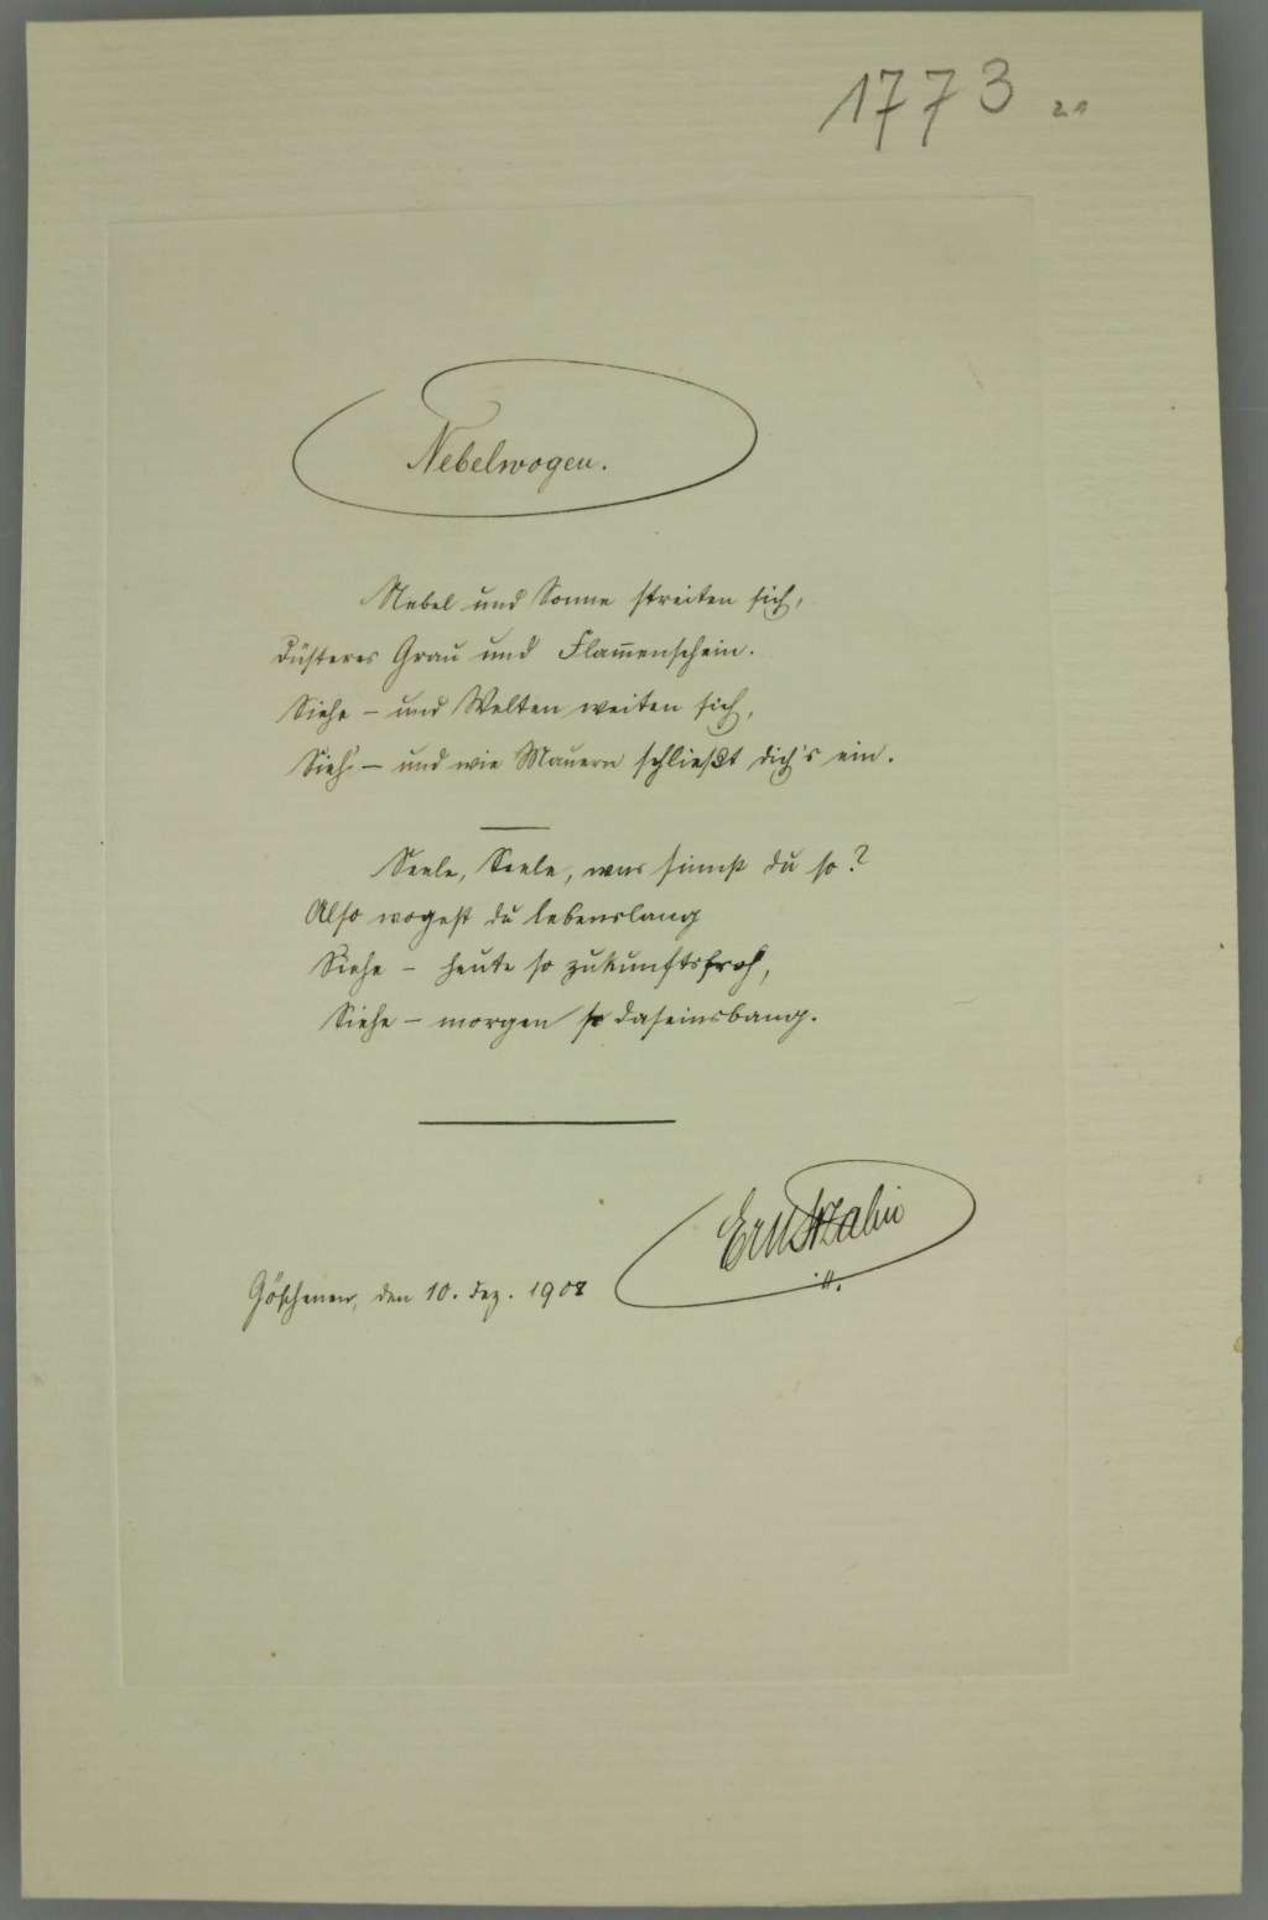 1773
Nebelwogen.
Nebel und Sonne streiten sich,
Düsteres Grau und Flam̄enschein.
Siehe – und Welten weiten sich,
Sieh' – und wie Mauern schließt dich's ein.
Seele, Seele, was sinnst du so?
Also wogest du lebenslang
Siehe – heute so zukunftsfroh,
Siehe – morgen so daseinsbang.
Ernst Zahn
Göschenen, den 10. Dez. 1908